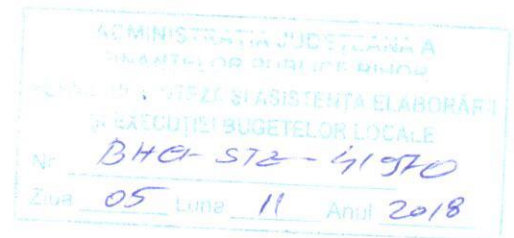 ADMINISTRAȚIA JUDEȚEANĂ A
FINANȚELOR PUBLICE BIHOR
SINTEZĂ ȘI ASISTENȚA ELABORĂRII
ȘI EXECUȚIEI BUGETELOR LOCALE
Nr.
Ziua 05 Luna 11 Anul 2018